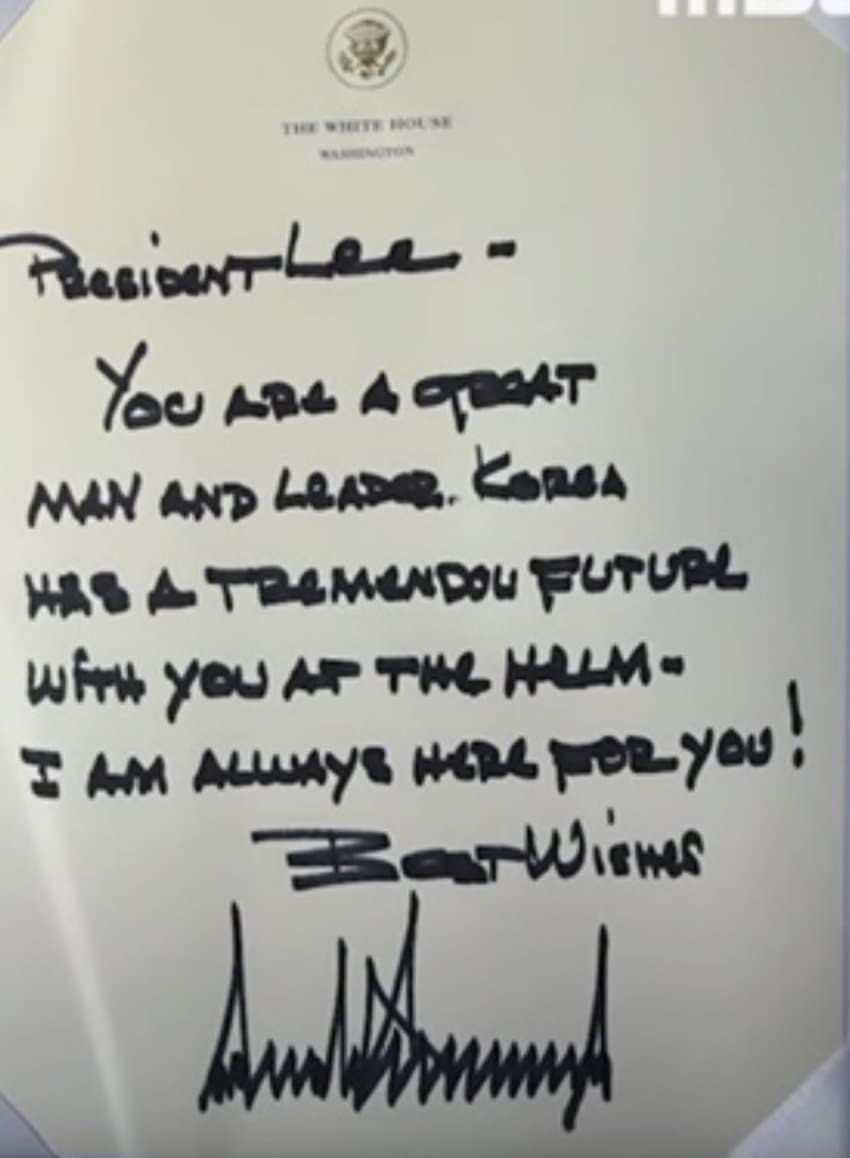 THE WHITE HOUSE
WASHINGTON
PRESIDENT LEE -
YOU ARE A GREAT
MAN AND LEADER. KOREA
HAS A TREMENDOU FUTURE
WITH YOU AT THE HELM-
I AM ALWAYS HERE FOR YOU!
BEST WISHES